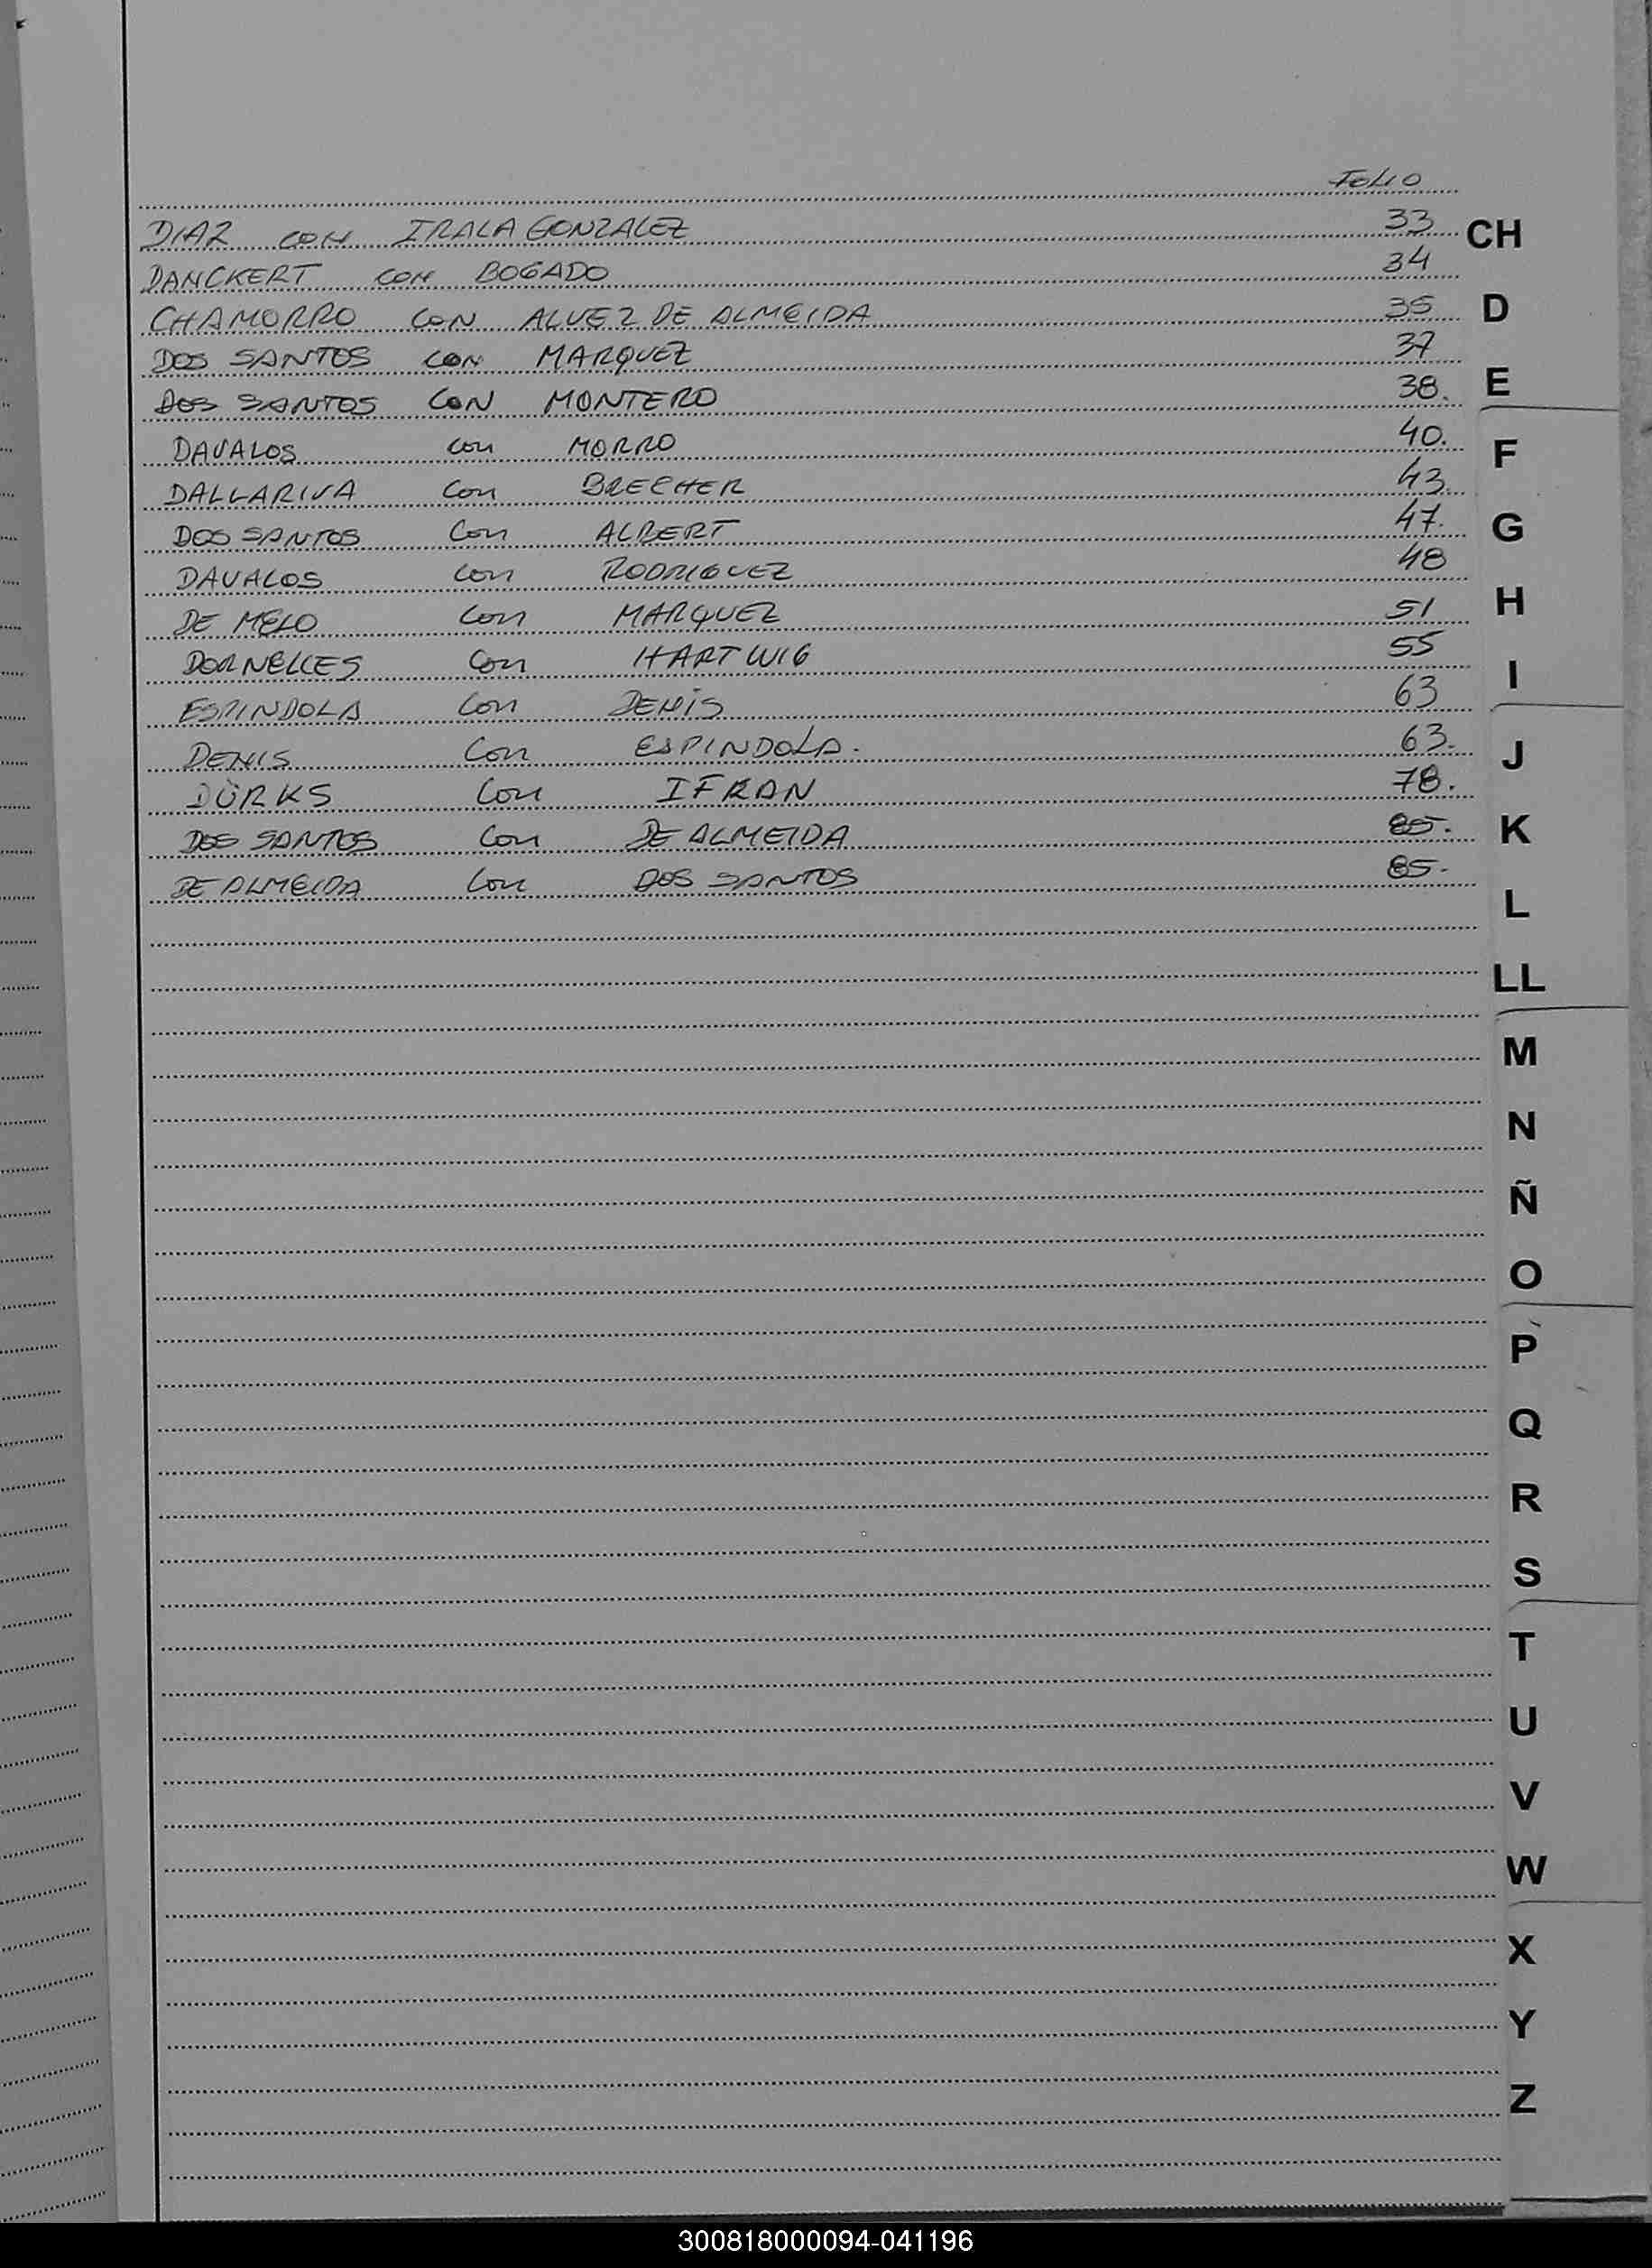 FOLIO
DIAZ con IRALA GONZALEZ 33 CH
DANCKERT con BOGADO 34
CHAMORRO CON ALVEZ DE ALMEIDA 35 D
DOS SANTOS CON MARQUEZ 37
DOS SANTOS CON MONTERO 38. E
DAVALOS con MORRO 40. F
DALLARIVA Con BRECHER 43.
DOS SANTOS Con ALBERT 47. G
DAVALOS con RODRIGUEZ 48
DE MELO Con MARQUEZ 51 H
DORNELLES Con HARTWIG 55
I
ESPINDOLA Con DENIS 63
DENIS Con ESPINDOLA. 63. J
DÜRKS Con IFRAN 78.
DOS SANTOS Con DE ALMEIDA 85. K
DE ALMEIDA Con DOS SANTOS 85.
L
LL
M
N
Ñ
O
P
Q
R
S
T
U
V
W
X
Y
Z
300818000094-041196